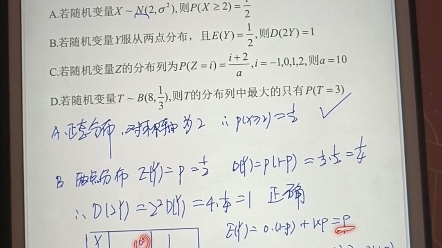 A.若随机变量X~N(2,σ²),则P(X≥2)=1/2
B.若随机变量Y服从两点分布，且E(Y)=1/2,则D(2Y)=1
C.若随机变量Z的分布列为P(Z=i)=(i+2)/a,i=-1,0,1,2,则a=10
D.若随机变量T~B(8,1/3),则T的分布列中最大的只有P(T=3)
A.正态分布,对称轴为2 ∴P(X≥2)=1/2 ✓
B 两点分布 E(Y)=P=1/2 D(Y)=P(1-P)=1/2·1/2=1/4
∴D(2Y)=2²D(Y)=4·1/4=1 正确
E(Y)=0·(1-P)+1×P=P
X